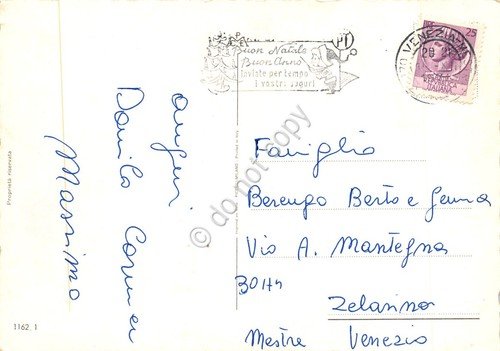 Buon Natale
Buon Anno
Inviate per tempo
i vostri auguri
PT
VENEZIA
25
ITALIANA
auguri
Danilo
Massimo
Proprietà riservata
1162 1
Famiglia
Berengo Berto e Gemma
Via A. Mantegna
30174
Zelarino
Mestre Venezia
© do not copy